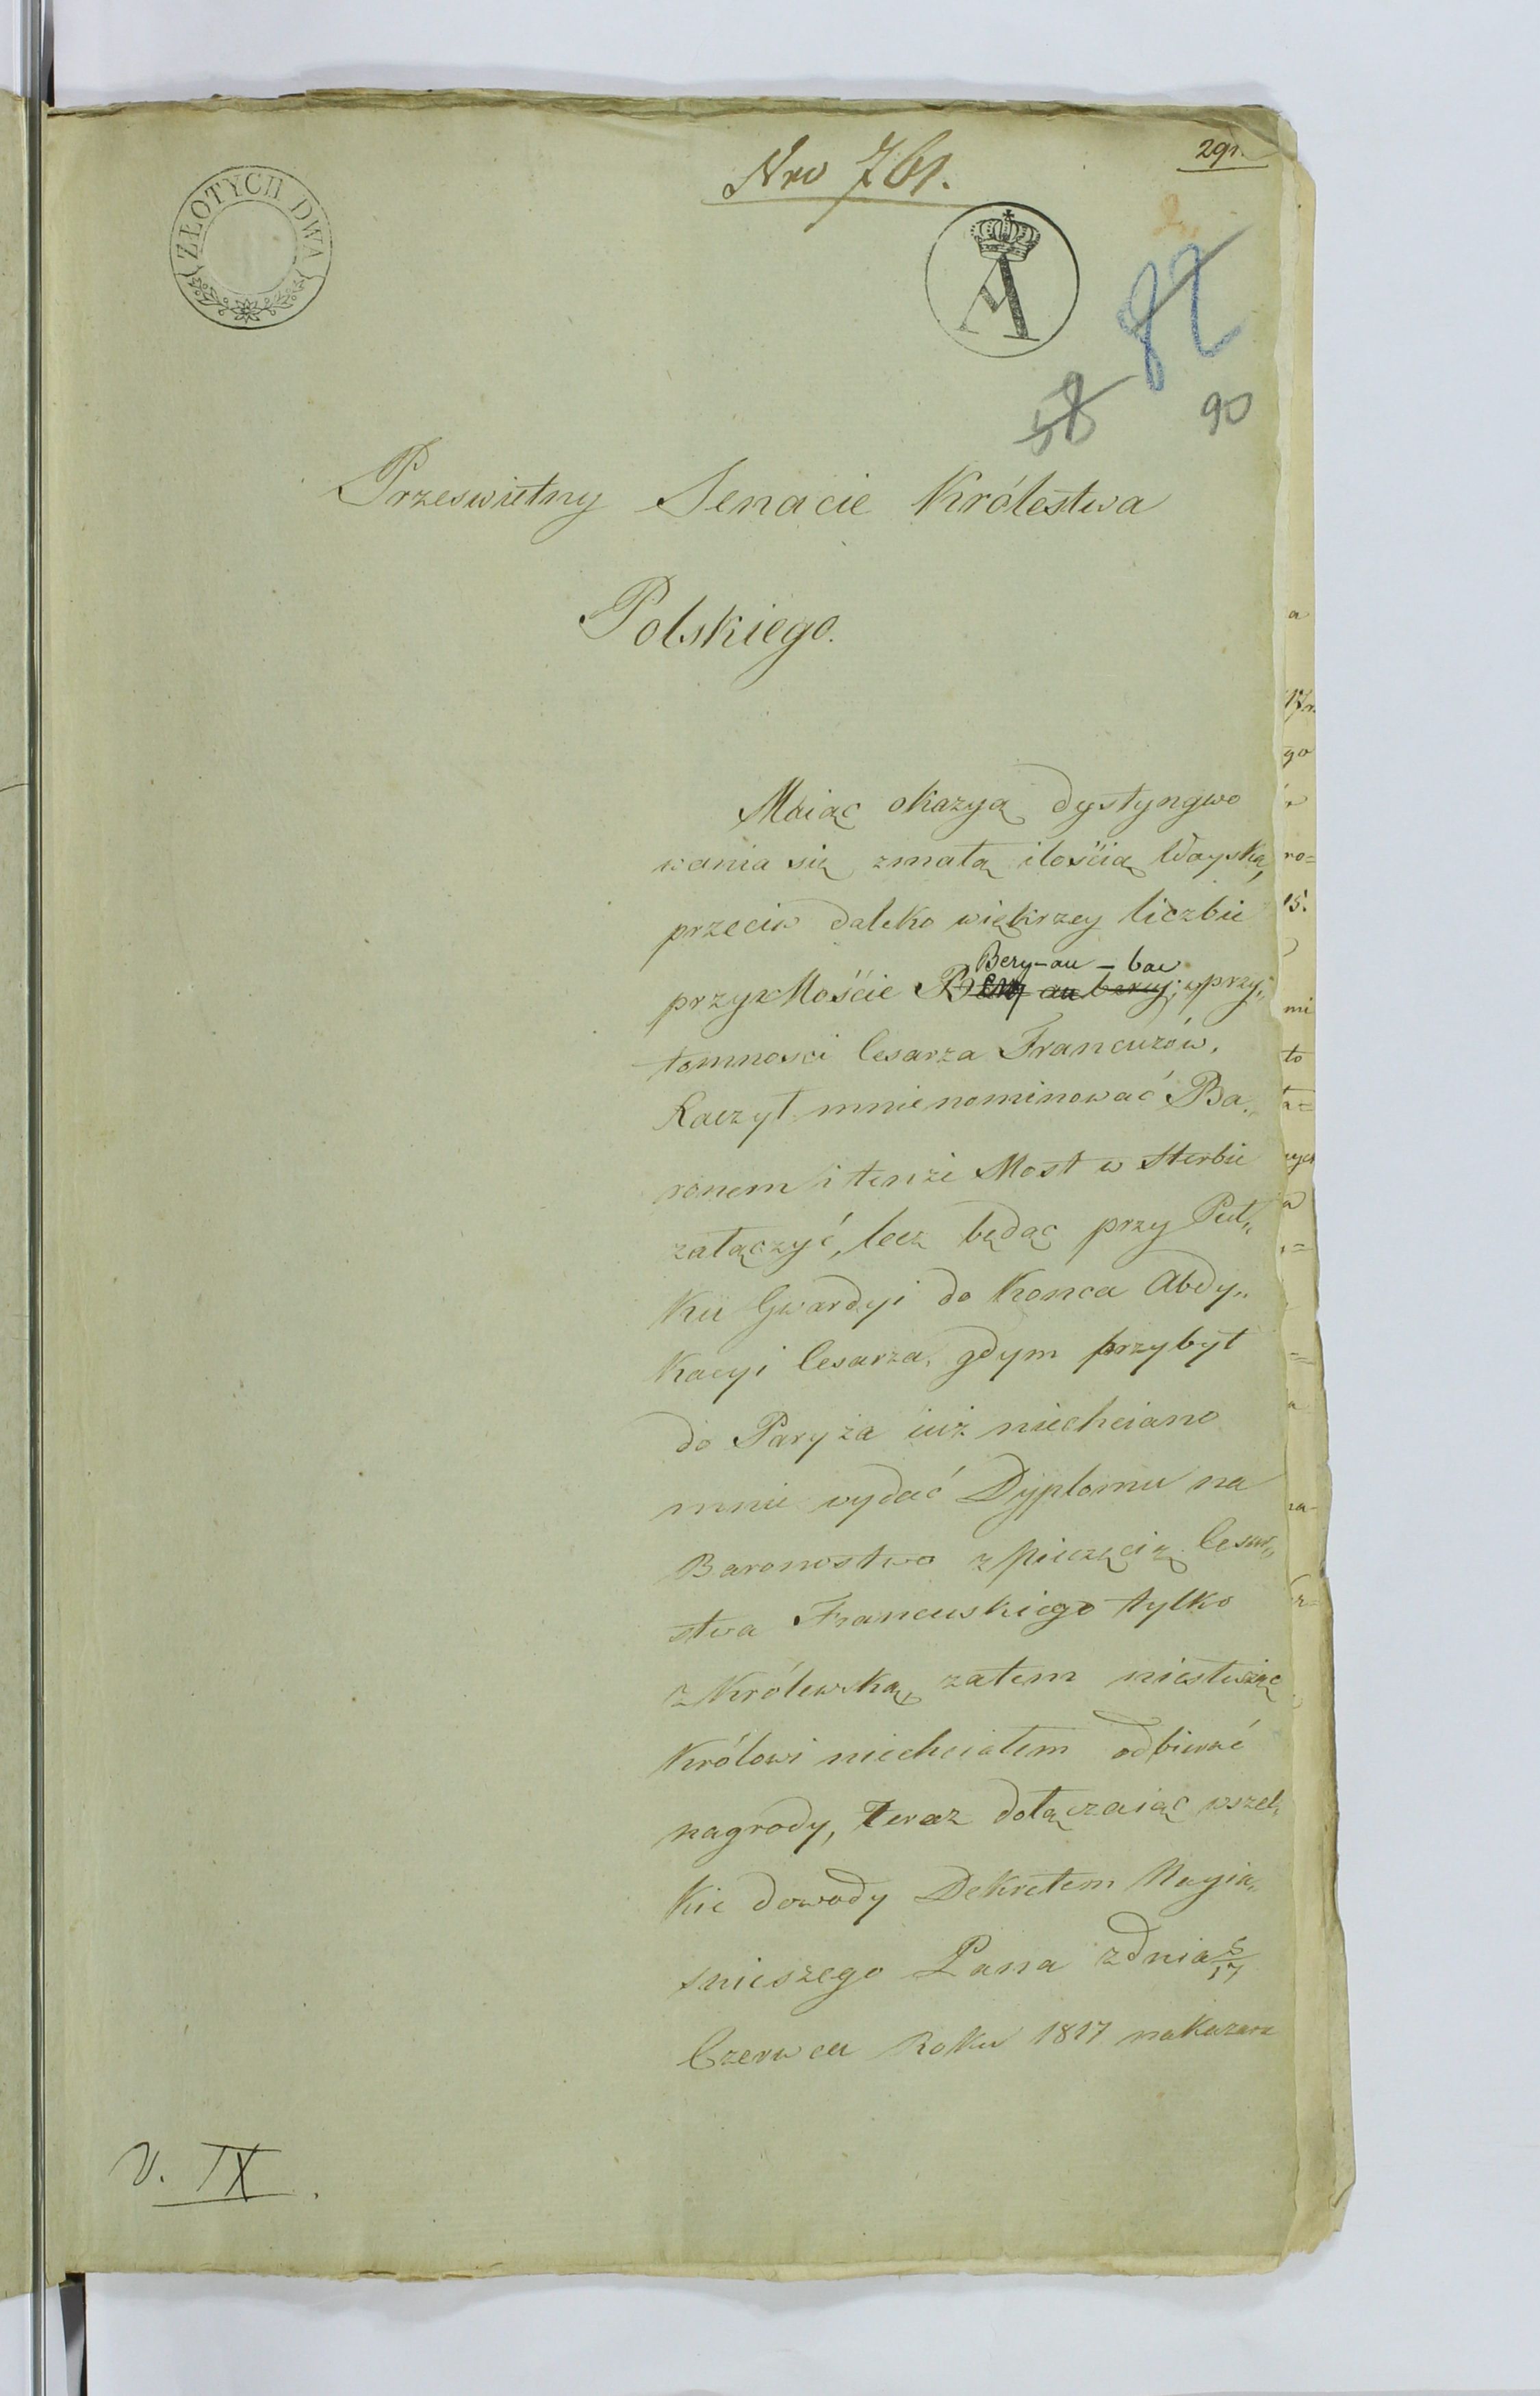 Nro 761.
291.
ZŁOTYCH DWA
A
82
58
90
Przeswietny Senacie Królestwa
Polskiego.
Maiąc okazyą dystyngwo
wania się zmałą ilością Woyska,
przeciw daleko większey liczbie
Bery-au-bac
przyxMoście Bery au beruy; wprzy„
tomnosci Cesarza Francuzów.
Raczył mnie nominować Ba„
ronem i tenże Most w Herbie
załączyć, lecz będąc przy Puł„
ku Gwardyi do Konca Abdy„
kacyi Cesarza, gdym przybył
do Paryża iuż niechciano
mnie wydać Dyplomu na
Baronostwo z pieczęcią Cesar„
stwa Francuskiego tylko
z Królewską, zatem niesłużąc
Królowi niechciałem odbierać
nagrody, teraz dołączaiąc wszel„
kie dowody Dekretem Nayia„
snieszego Pana zdnia 5/17
Czerwca Roku 1817 nakazane
V. IX.